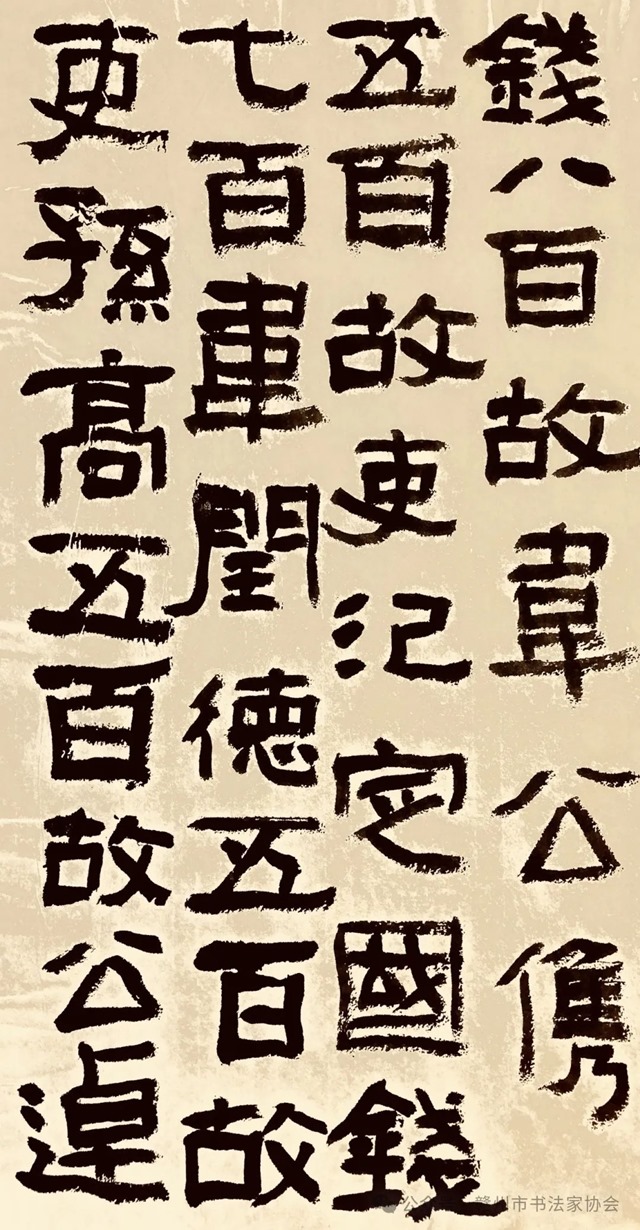 錢八百故韋公儁
五百故吏氾定國錢
七百韋閏德五百故
吏孫高五百故公逴
公众号 赣州市书法家协会